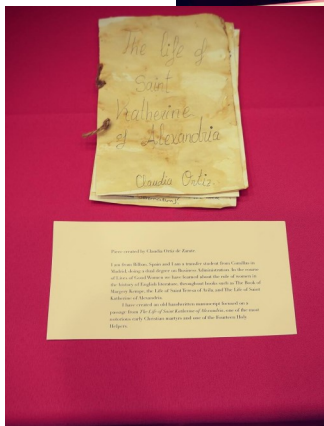 The life of
Saint
Katherine
of Alexandria
Claudia Ortiz
Piece created by Claudia Ortiz de Zarate
I am from Bilbao, Spain and I am a transfer student from Comillas in
Madrid, doing a dual degree on Business Administration. In the course
of Lives of Good Women we have learned about the role of women in
the history of English literature, throughout books such as The Book of
Margery Kempe, the Life of Saint Teresa of Avila and The Life of Saint
Katherine of Alexandria.
I have created an old handwritten manuscript focused on a
passage from The Life of Saint Katherine of Alexandria, one of the most
notorious early Christian martyrs and one of the Fourteen Holy
Helpers.